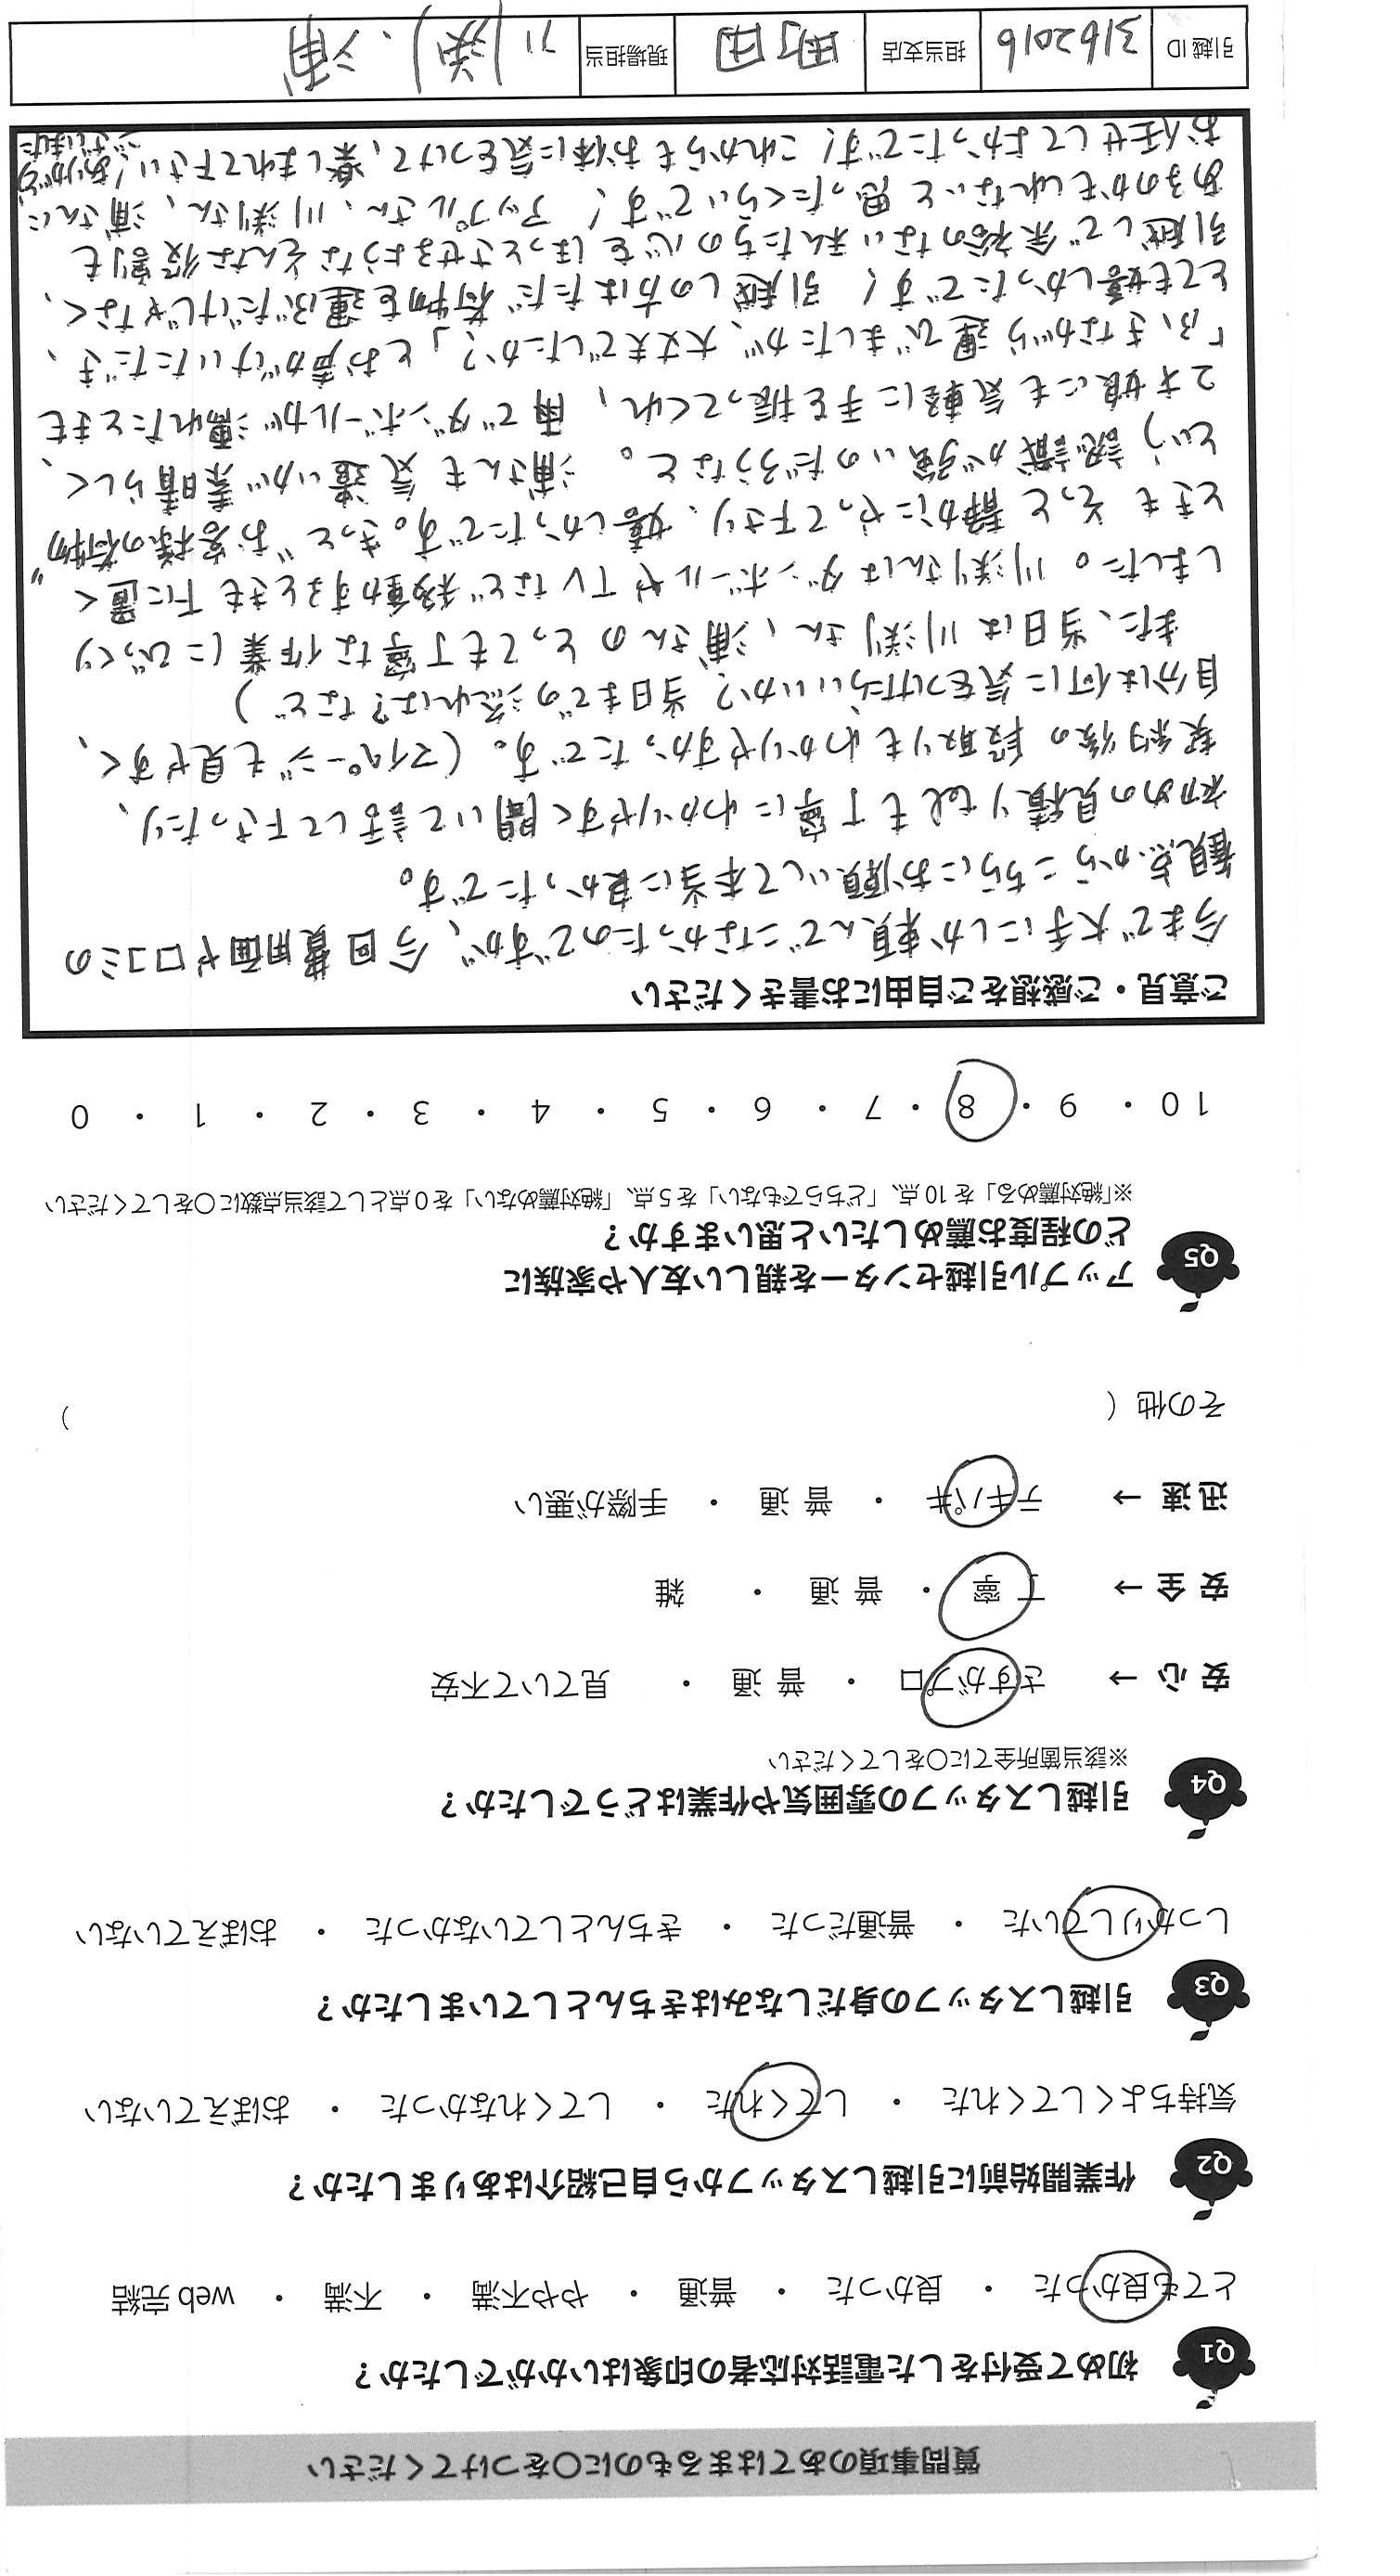 質問事項のあてはまるものに○をつけてください
Q1 初めて受付をした電話対応者の印象はいかがでしたか？
とても良かった ・ 良かった ・ 普通 ・ やや不満 ・ 不満 ・ web完結
Q2 作業開始前に引越しスタッフから自己紹介はありましたか？
気持ちよくしてくれた ・ してくれた ・ してくれなかった ・ おぼえていない
Q3 引越しスタッフの身だしなみはきちんとしていましたか？
しっかりしていた ・ 普通だった ・ きちんとしていなかった ・ おぼえていない
Q4 引越しスタッフの雰囲気や作業はどうでしたか？
※該当箇所全てに○をしてください
安心 → さすがプロ ・ 普通 ・ 見ていて不安
安全 → 丁寧 ・ 普通 ・ 雑
迅速 → テキパキ ・ 普通 ・ 手際が悪い
その他（ ）
Q5 アップル引越センターを親しい友人や家族に
どの程度お薦めしたいと思いますか？
※「絶対薦める」を10点、「どちらでもない」を5点、「絶対薦めない」を0点として該当点数に○をしてください
10 ・ 9 ・ 8 ・ 7 ・ 6 ・ 5 ・ 4 ・ 3 ・ 2 ・ 1 ・ 0
ご意見・ご感想をご自由にお書きください
今まで大手にしか頼んでこなかったのですが、今回費用面や口コミの
観点からこちらにお願いして本当に良かったです。
初めの見積りtelも丁寧にわかりやすく聞いて話して下さったり、
契約後の段取りもわかりやすかったです。(マイページも見やすく、
自分は何に気をつけたらいいか？当日までの流れは？など)
また、当日は川渕さん、浦さんのとっても丁寧な作業にびっくり
しました。川渕さんはダンボールやTVなど移動するときも下に置く
ときもそっと静かにやって下さり、嬉しかったです。きっと"お客様の荷物"
という認識が強いのだろうなと。浦さんも気遣いが素晴らしく、
2才娘にも気軽に手を振ってくれ、雨でダンボールが濡れたときも
「ふきながら運びましたが、大丈夫でしたか？」とお声がけいただき、
とても嬉しかったです！引越しの方はただ荷物を運ぶだけじゃなく、
引越しで余裕のない私たちの心をほっとさせるようなそんな役割も
あるのかもしれないと思ったくらいです！アップルさん、川渕さん、浦さんに
お任せしてよかったです！これからもお体に気をつけて、楽しまれて下さい！ありがとう
ございました
引越ID 3162016 担当支店 町田 現場担当 川渕、浦